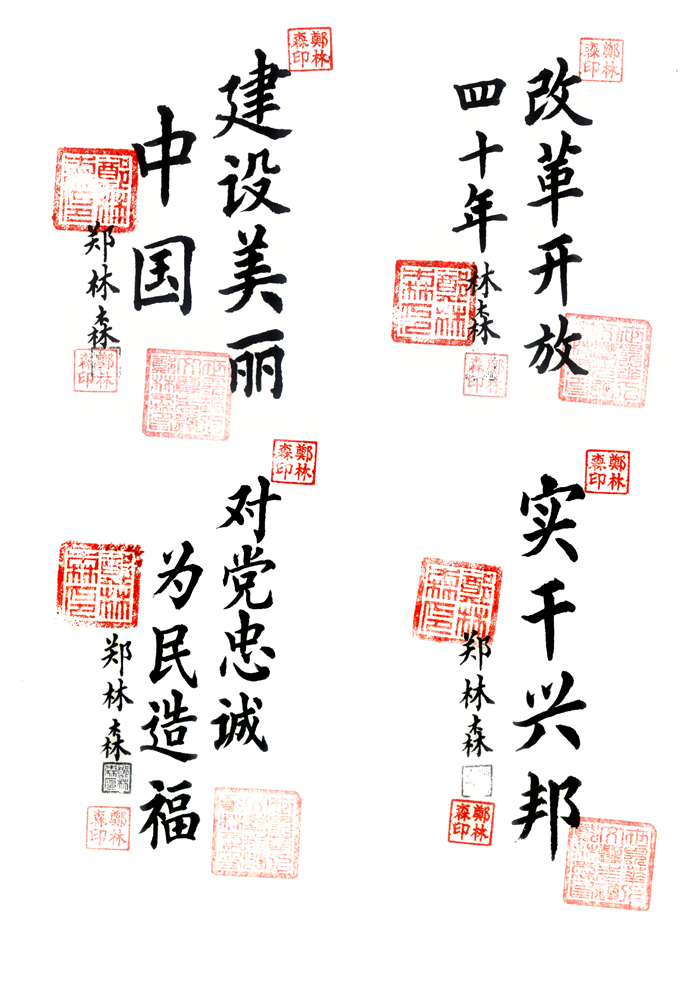 鄭林
森印
改革开放
四十年
林森
鄭林
森印
鄭林
森印
鄭林
森印
建设美丽
中国
郑林森
鄭林
森印
鄭林
森印
鄭林
森印
实干兴邦
郑林森
鄭林
森印
鄭林
森印
鄭林
森印
对党忠诚
为民造福
郑林森
鄭林
森印
鄭林
森印